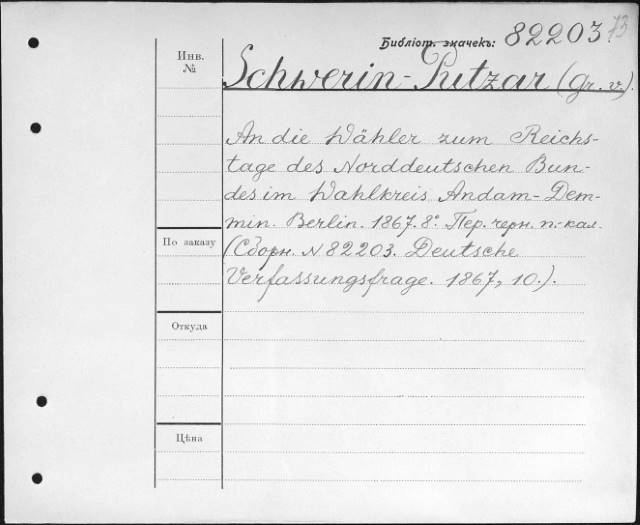 Библіот. значекъ: 82203. 73
Инв. №
Schwerin-Putzar (Gr. v.).
An die Wähler zum Reichs-
tage des Norddeutschen Bun-
des im Wahlkreis Andam-Dem-
min. Berlin. 1867. 8°. Пер. черн. п.-кал.
(Сборн. N 82203. Deutsche
Verfassungsfrage. 1867, 10.).
По заказу
Откуда
Цѣна